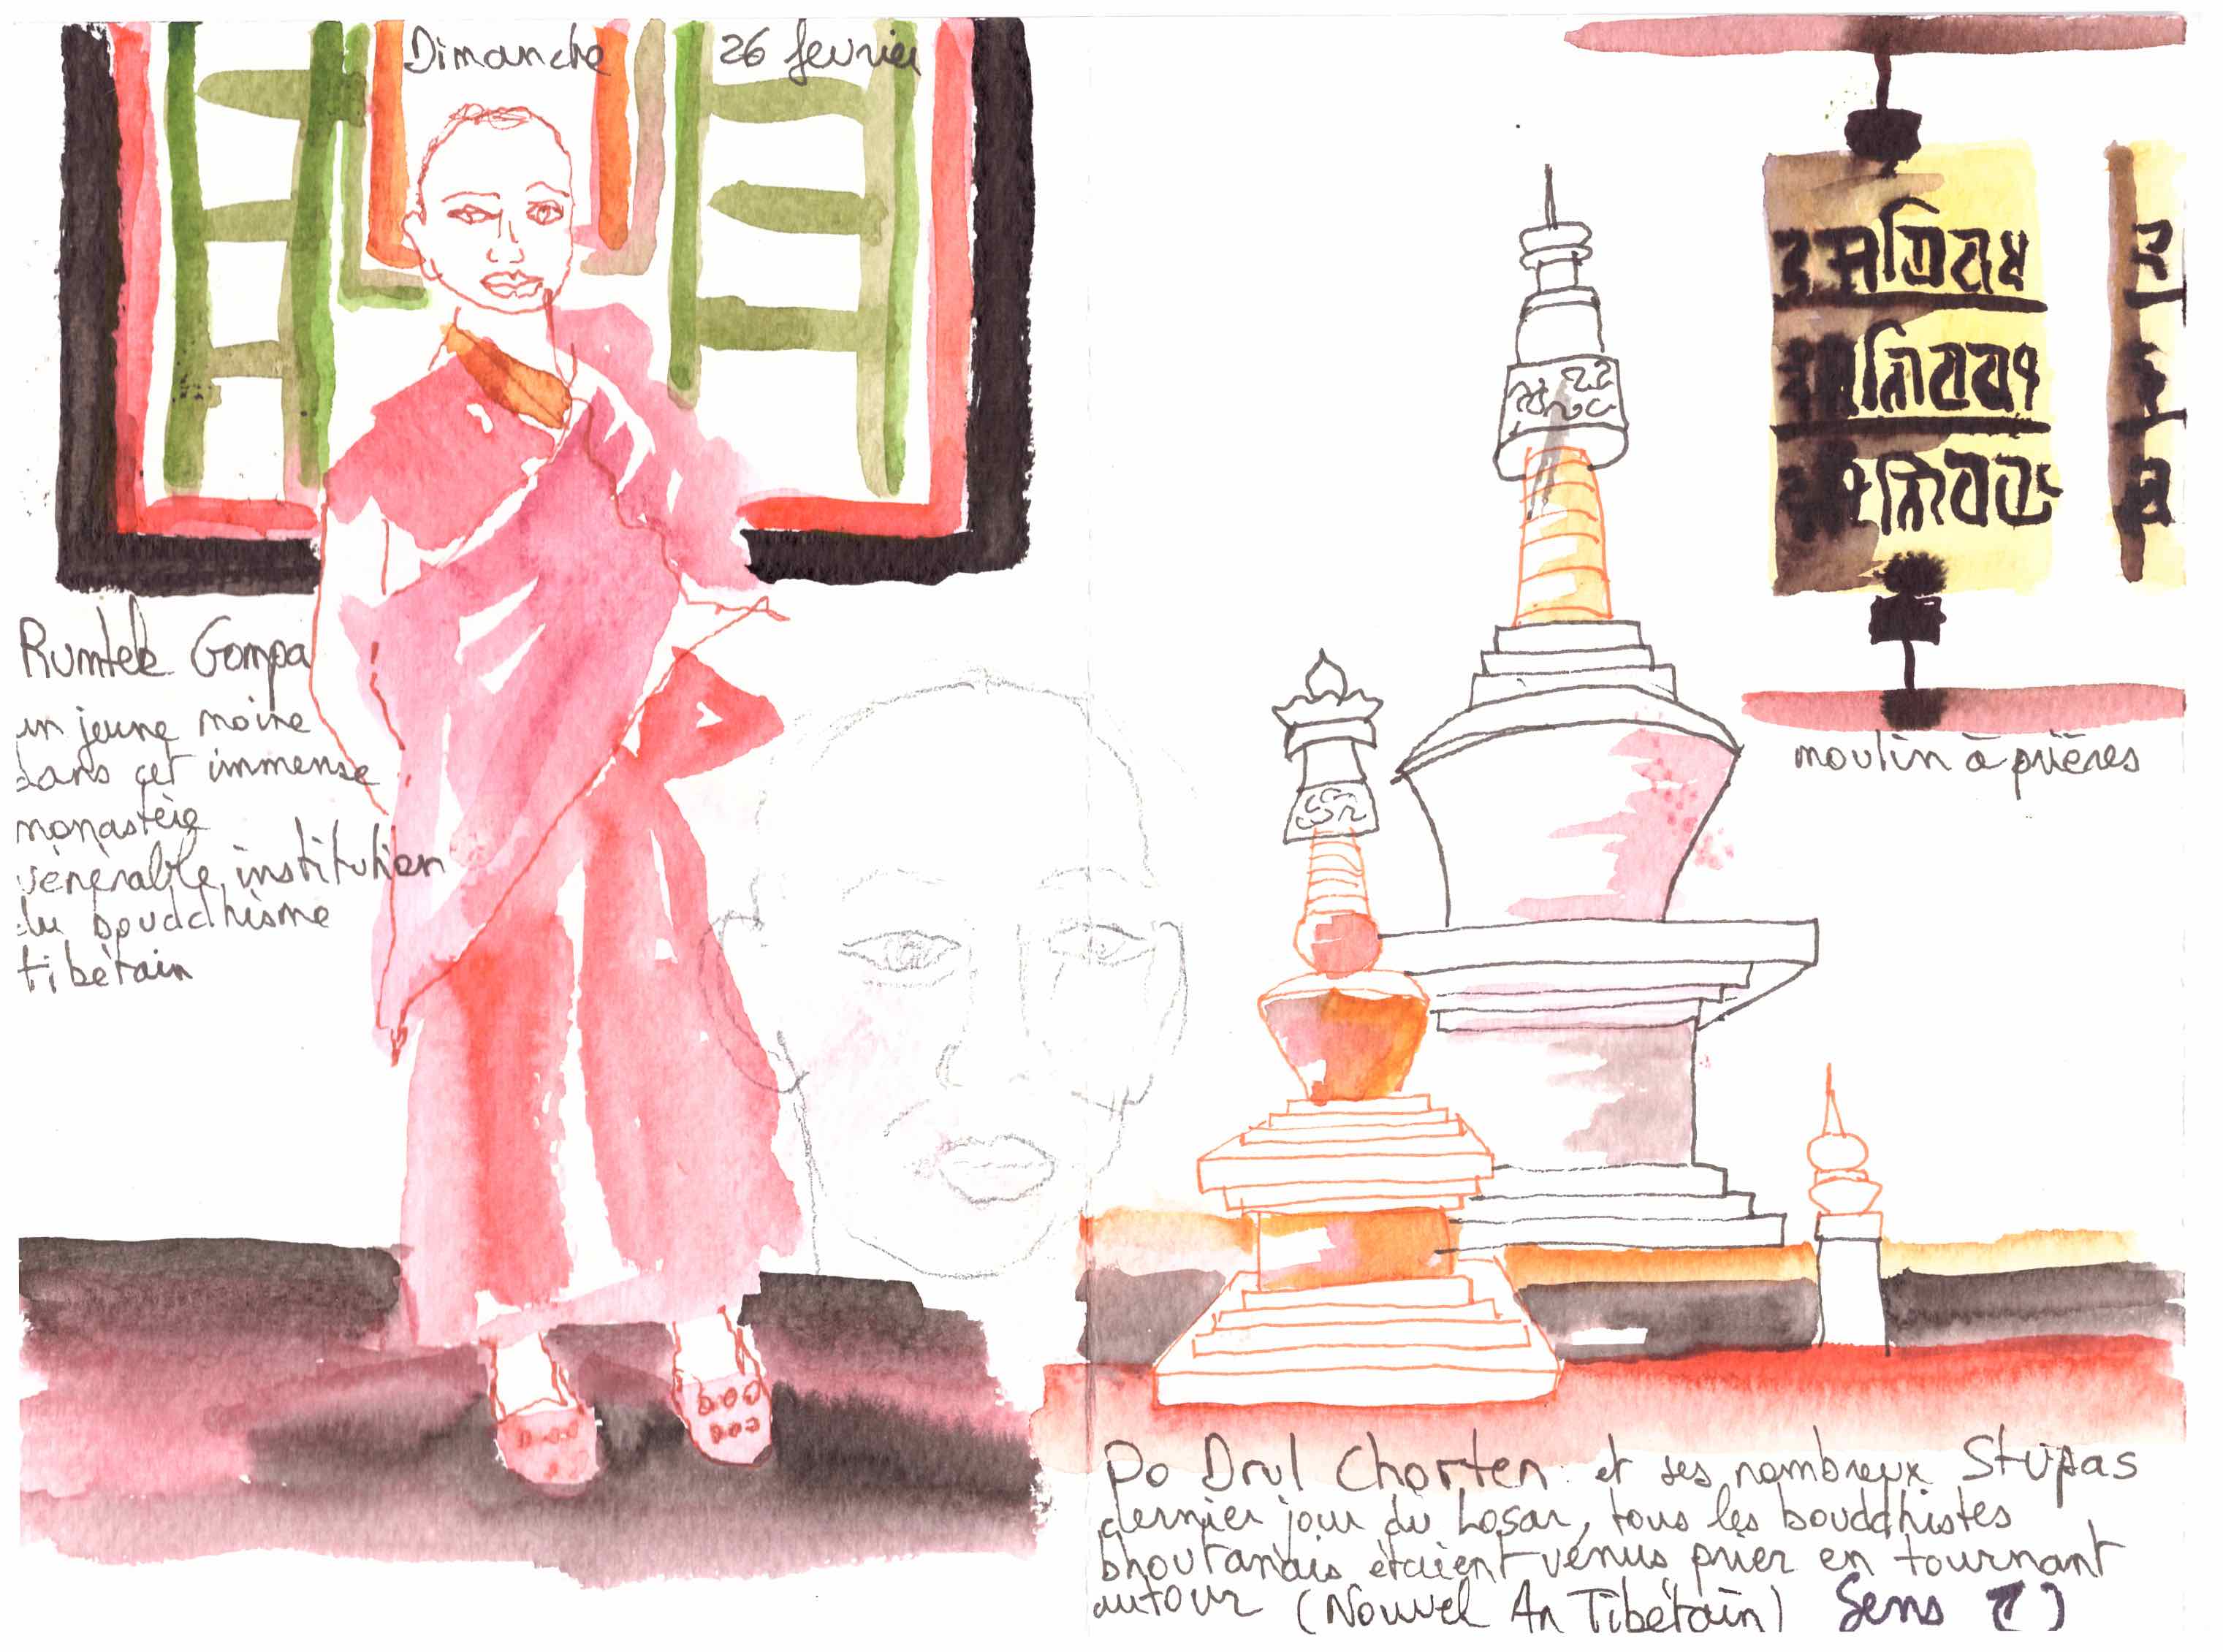 Dimanche 26 fevrier
Rumtek Gompa
un jeune moine
dans cet immense
monastère
vénérable institution
du bouddhisme
tibétain
moulin à prières
Do Drul Chorten et ses nombreux Stupas
dernier jour du Losar, tous les bouddhistes
bhoutanais étaient venus prier en tournant
autour (Nouvel An Tibétain) Sens